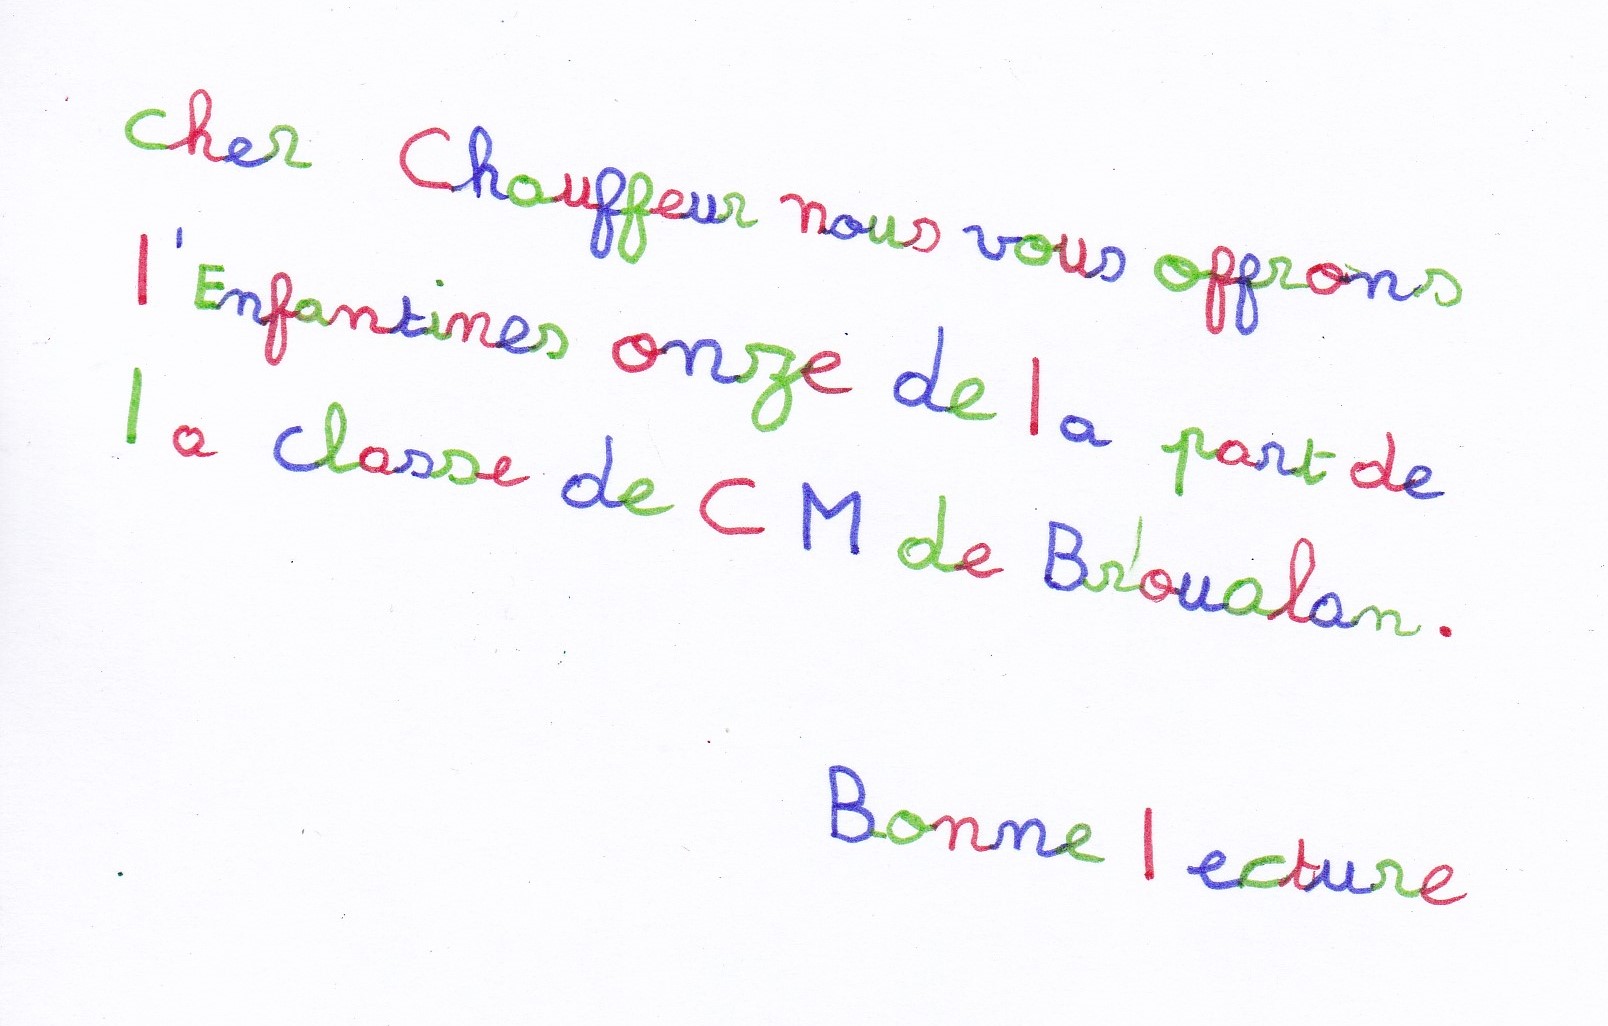 cher Chauffeur nous vous offrons
l'Enfantines onze de la part de
la classe de CM de Broualan.
Bonne lecture